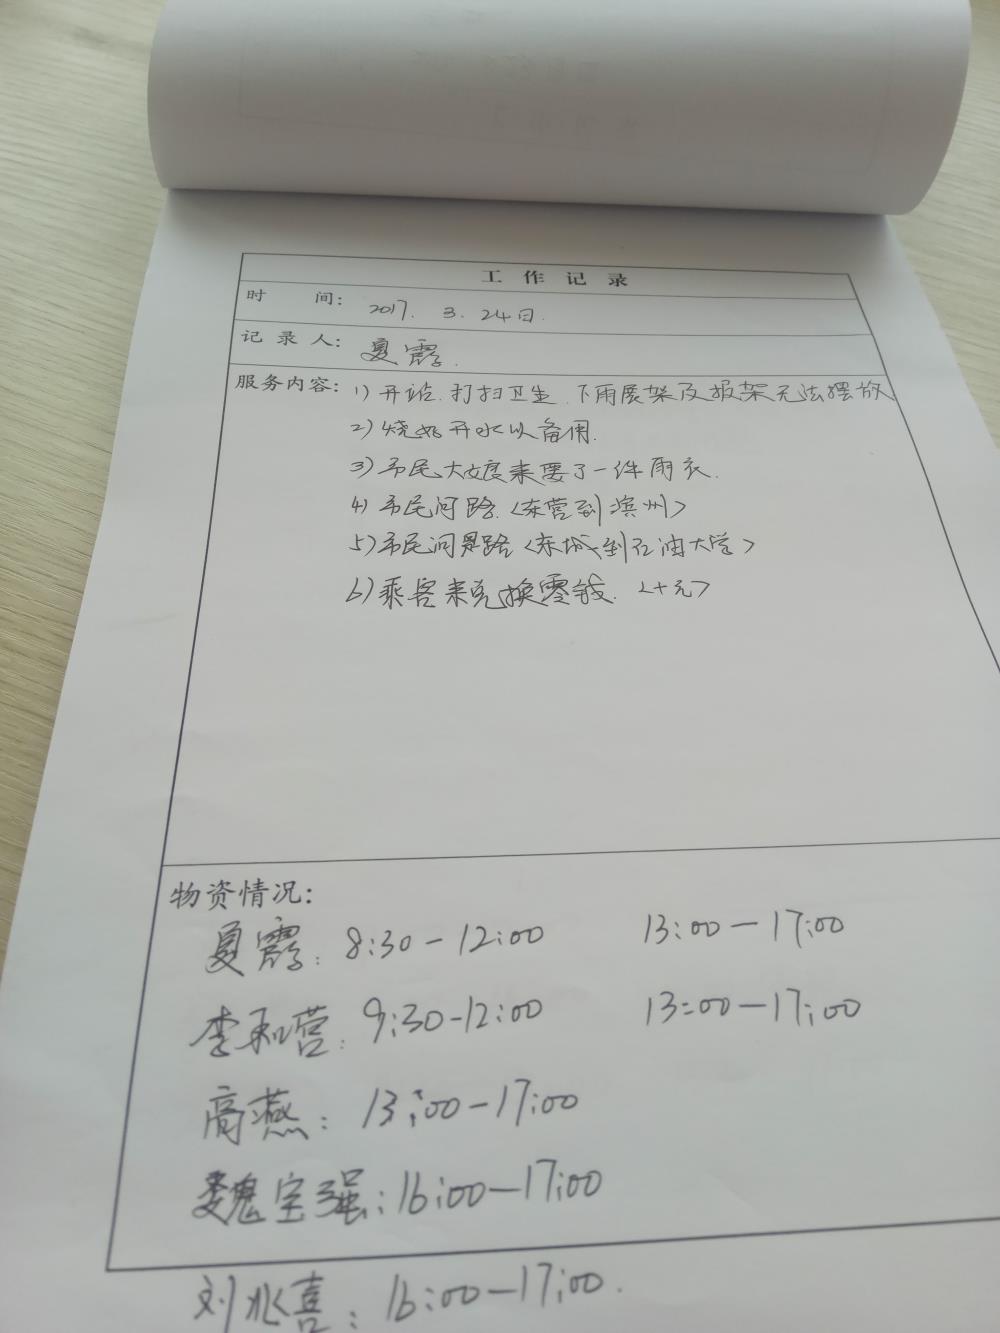 工作记录
时 间: 2017. 3. 24日.
记 录 人: 夏霞.
服务内容: 1) 开站.打扫卫生.下雨展架及报架无法摆放
2) 烧好开水以备用.
3) 市民大嫂来要了一件雨衣.
4) 市民问路.<东营到滨州>
5) 市民问路<东城到石油大学>
6) 乘客来兑换零钱. <十元>
物资情况:
夏霞: 8:30-12:00 13:00-17:00
李和营: 9:30-12:00 13:00-17:00
高燕: 13:00-17:00
魏宝强: 16:00-17:00
刘兆喜: 16:00-17:00.